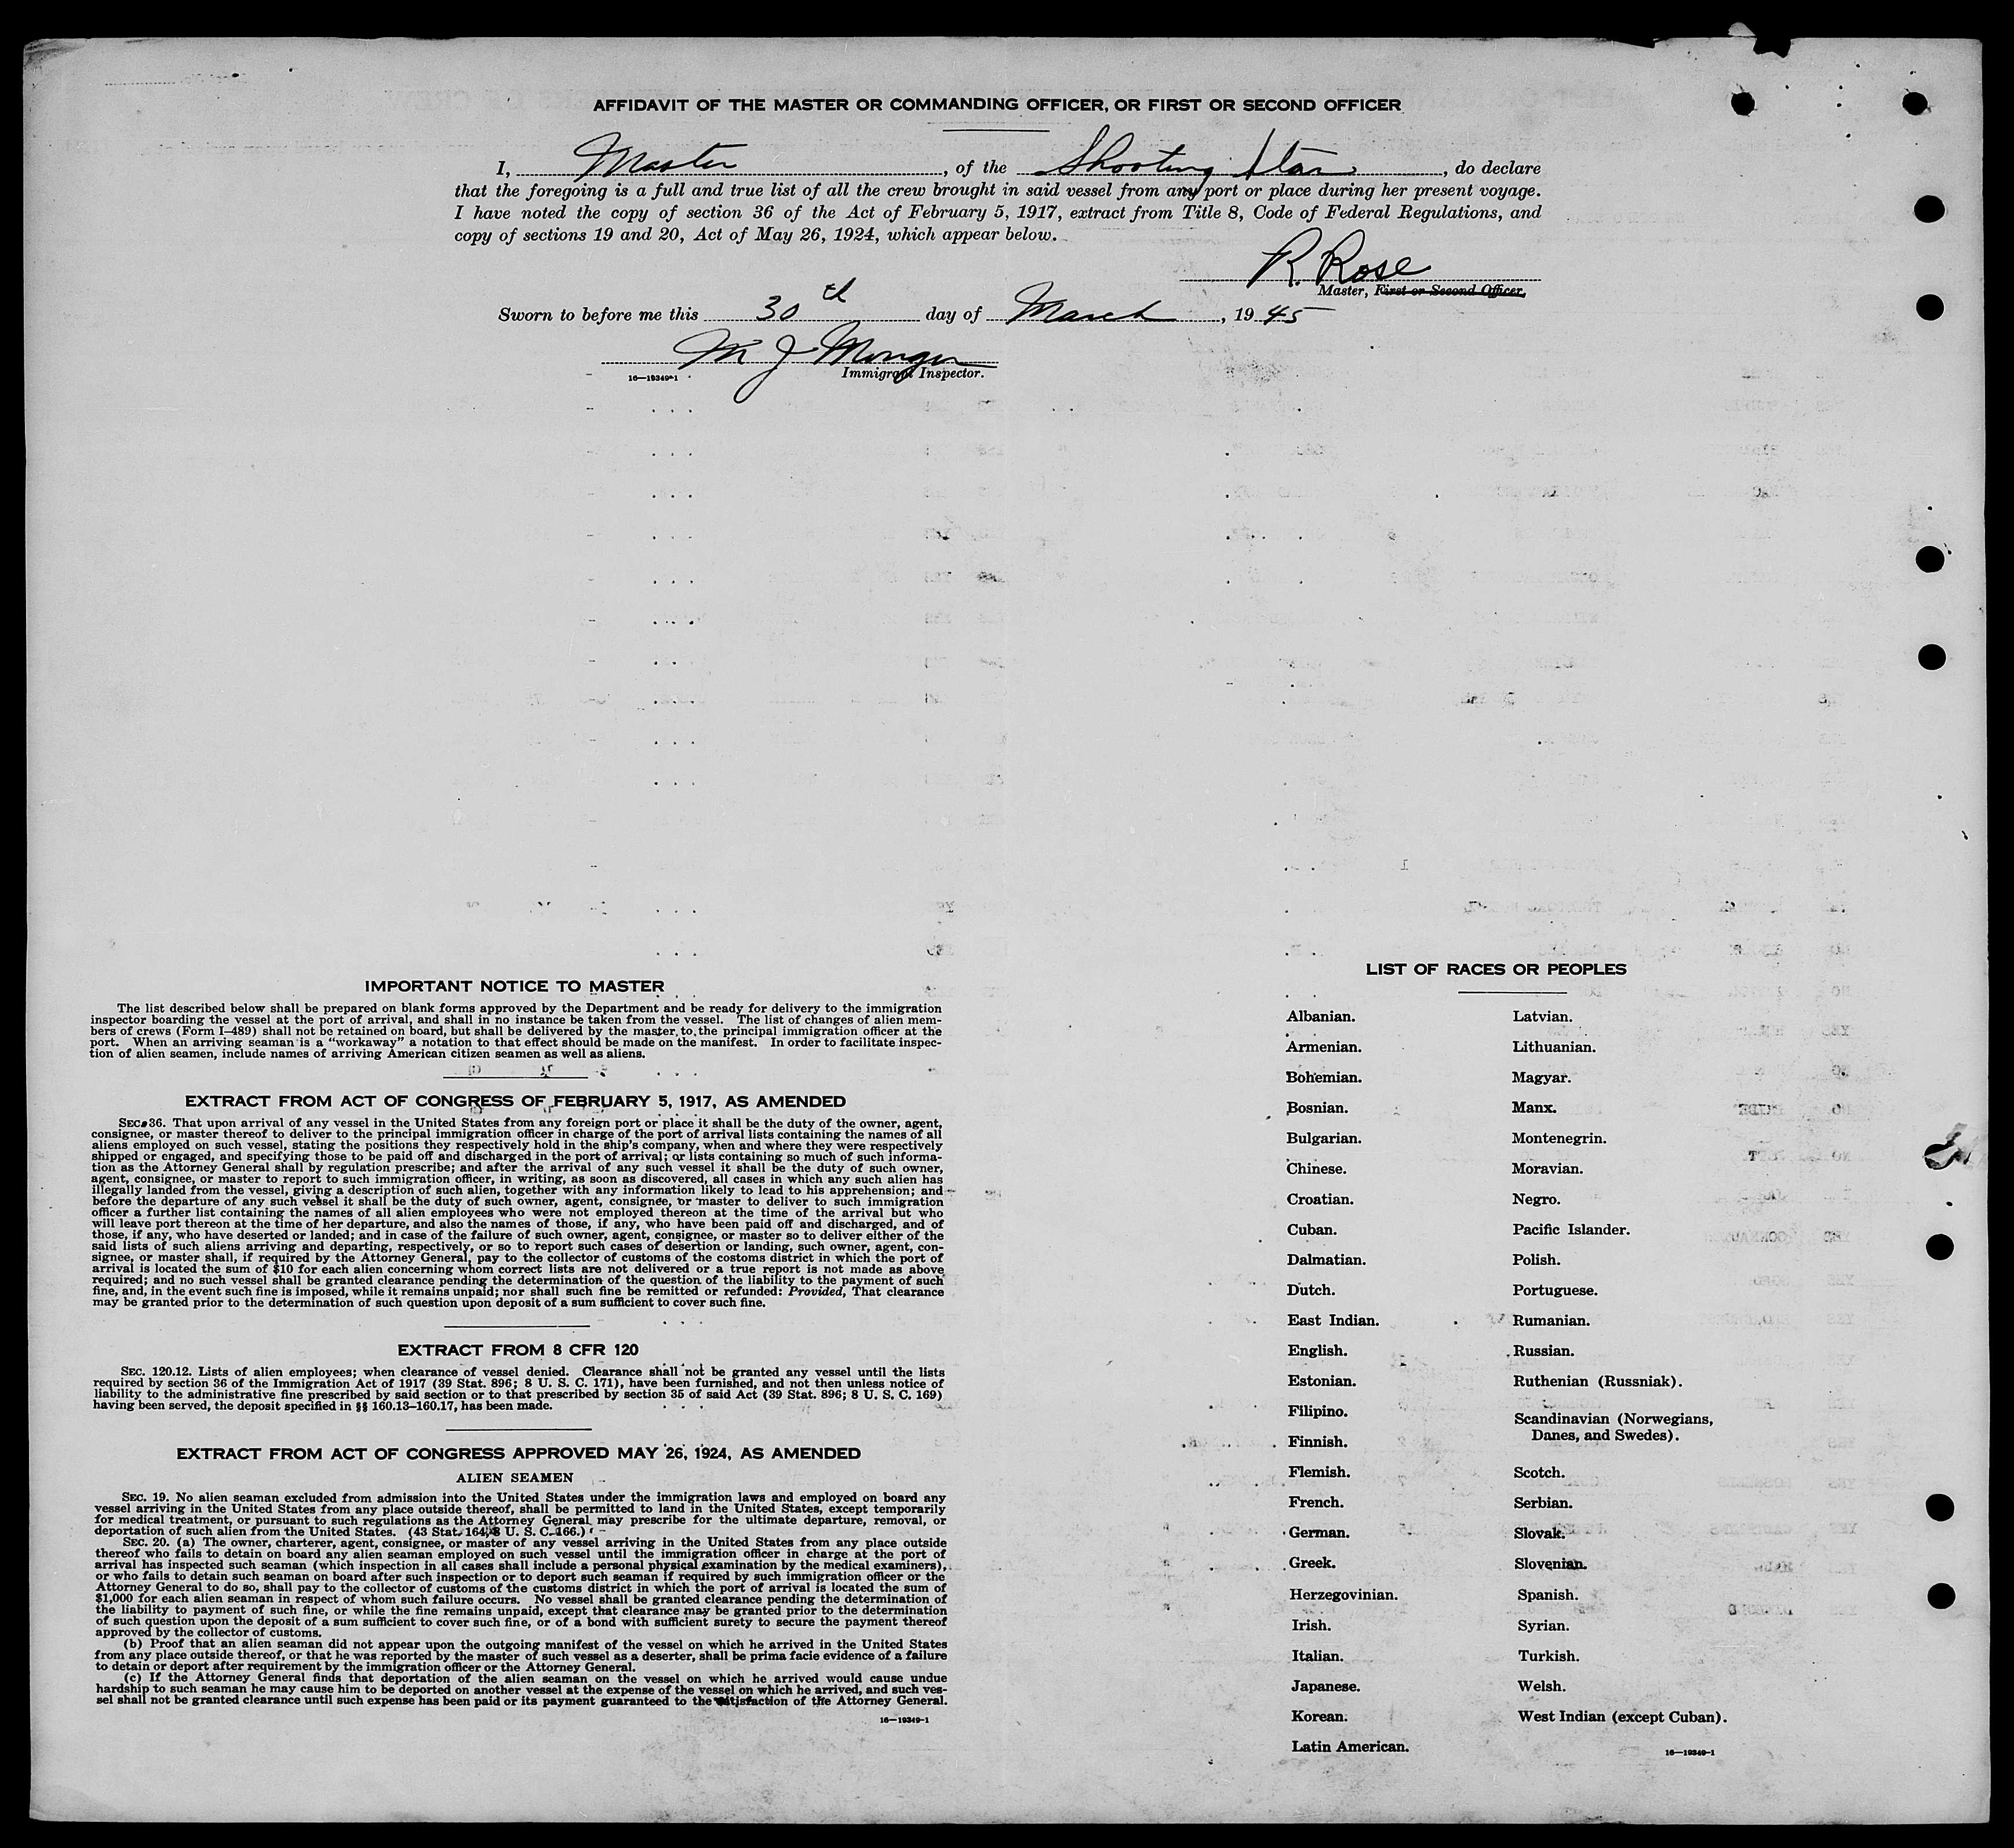 AFFIDAVIT OF THE MASTER OR COMMANDING OFFICER, OR FIRST OR SECOND OFFICER
I, Master, of the Shooting Star, do declare
that the foregoing is a full and true list of all the crew brought in said vessel from any port or place during her present voyage.
I have noted the copy of section 36 of the Act of February 5, 1917, extract from Title 8, Code of Federal Regulations, and
copy of sections 19 and 20, Act of May 26, 1924, which appear below.
R. Rose
Master, First or Second Officer.
Sworn to before me this 30th day of March, 1945
M J
Immigrant Inspector.
16—19349-1
IMPORTANT NOTICE TO MASTER
The list described below shall be prepared on blank forms approved by the Department and be ready for delivery to the immigration
inspector boarding the vessel at the port of arrival, and shall in no instance be taken from the vessel. The list of changes of alien mem-
bers of crews (Form I-489) shall not be retained on board, but shall be delivered by the master to the principal immigration officer at the
port. When an arriving seaman is a "workaway" a notation to that effect should be made on the manifest. In order to facilitate inspec-
tion of alien seamen, include names of arriving American citizen seamen as well as aliens.
EXTRACT FROM ACT OF CONGRESS OF FEBRUARY 5, 1917, AS AMENDED
SEC. 36. That upon arrival of any vessel in the United States from any foreign port or place it shall be the duty of the owner, agent,
consignee, or master thereof to deliver to the principal immigration officer in charge of the port of arrival lists containing the names of all
aliens employed on such vessel, stating the positions they respectively hold in the ship's company, when and where they were respectively
shipped or engaged, and specifying those to be paid off and discharged in the port of arrival; or lists containing so much of such informa-
tion as the Attorney General shall by regulation prescribe; and after the arrival of any such vessel it shall be the duty of such owner,
agent, consignee, or master to report to such immigration officer, in writing, as soon as discovered, all cases in which any such alien has
illegally landed from the vessel, giving a description of such alien, together with any information likely to lead to his apprehension; and
before the departure of any such vessel it shall be the duty of such owner, agent, consignee, or master to deliver to such immigration
officer a further list containing the names of all alien employees who were not employed thereon at the time of the arrival but who
will leave port thereon at the time of her departure, and also the names of those, if any, who have been paid off and discharged, and of
those, if any, who have deserted or landed; and in case of the failure of such owner, agent, consignee, or master so to deliver either of the
said lists of such aliens arriving and departing, respectively, or so to report such cases of desertion or landing, such owner, agent, con-
signee, or master shall, if required by the Attorney General, pay to the collector of customs of the costoms district in which the port of
arrival is located the sum of $10 for each alien concerning whom correct lists are not delivered or a true report is not made as above
required; and no such vessel shall be granted clearance pending the determination of the question of the liability to the payment of such
fine, and, in the event such fine is imposed, while it remains unpaid; nor shall such fine be remitted or refunded: Provided, That clearance
may be granted prior to the determination of such question upon deposit of a sum sufficient to cover such fine.
EXTRACT FROM 8 CFR 120
SEC. 120.12. Lists of alien employees; when clearance of vessel denied. Clearance shall not be granted any vessel until the lists
required by section 36 of the Immigration Act of 1917 (39 Stat. 896; 8 U. S. C. 171), have been furnished, and not then unless notice of
liability to the administrative fine prescribed by said section or to that prescribed by section 35 of said Act (39 Stat. 896; 8 U. S. C. 169)
having been served, the deposit specified in §§ 160.13–160.17, has been made.
EXTRACT FROM ACT OF CONGRESS APPROVED MAY 26, 1924, AS AMENDED
ALIEN SEAMEN
SEC. 19. No alien seaman excluded from admission into the United States under the immigration laws and employed on board any
vessel arriving in the United States from any place outside thereof, shall be permitted to land in the United States, except temporarily
for medical treatment, or pursuant to such regulations as the Attorney General may prescribe for the ultimate departure, removal, or
deportation of such alien from the United States. (43 Stat. 164; 8 U. S. C. 166.)
SEC. 20. (a) The owner, charterer, agent, consignee, or master of any vessel arriving in the United States from any place outside
thereof who fails to detain on board any alien seaman employed on such vessel until the immigration officer in charge at the port of
arrival has inspected such seaman (which inspection in all cases shall include a personal physical examination by the medical examiners),
or who fails to detain such seaman on board after such inspection or to deport such seaman if required by such immigration officer or the
Attorney General to do so, shall pay to the collector of customs of the customs district in which the port of arrival is located the sum of
$1,000 for each alien seaman in respect of whom such failure occurs. No vessel shall be granted clearance pending the determination of
the liability to payment of such fine, or while the fine remains unpaid, except that clearance may be granted prior to the determination
of such question upon the deposit of a sum sufficient to cover such fine, or of a bond with sufficient surety to secure the payment thereof
approved by the collector of customs.
(b) Proof that an alien seaman did not appear upon the outgoing manifest of the vessel on which he arrived in the United States
from any place outside thereof, or that he was reported by the master of such vessel as a deserter, shall be prima facie evidence of a failure
to detain or deport after requirement by the immigration officer or the Attorney General.
(c) If the Attorney General finds that deportation of the alien seaman on the vessel on which he arrived would cause undue
hardship to such seaman he may cause him to be deported on another vessel at the expense of the vessel on which he arrived, and such ves-
sel shall not be granted clearance until such expense has been paid or its payment guaranteed to the satisfaction of the Attorney General.
16—19349-1
LIST OF RACES OR PEOPLES
Albanian.
Armenian.
Bohemian.
Bosnian.
Bulgarian.
Chinese.
Croatian.
Cuban.
Dalmatian.
Dutch.
East Indian.
English.
Estonian.
Filipino.
Finnish.
Flemish.
French.
German.
Greek.
Herzegovinian.
Irish.
Italian.
Japanese.
Korean.
Latin American.
Latvian.
Lithuanian.
Magyar.
Manx.
Montenegrin.
Moravian.
Negro.
Pacific Islander.
Polish.
Portuguese.
Rumanian.
Russian.
Ruthenian (Russniak).
Scandinavian (Norwegians,
Danes, and Swedes).
Scotch.
Serbian.
Slovak.
Slovenian.
Spanish.
Syrian.
Turkish.
Welsh.
West Indian (except Cuban).
16—19349-1